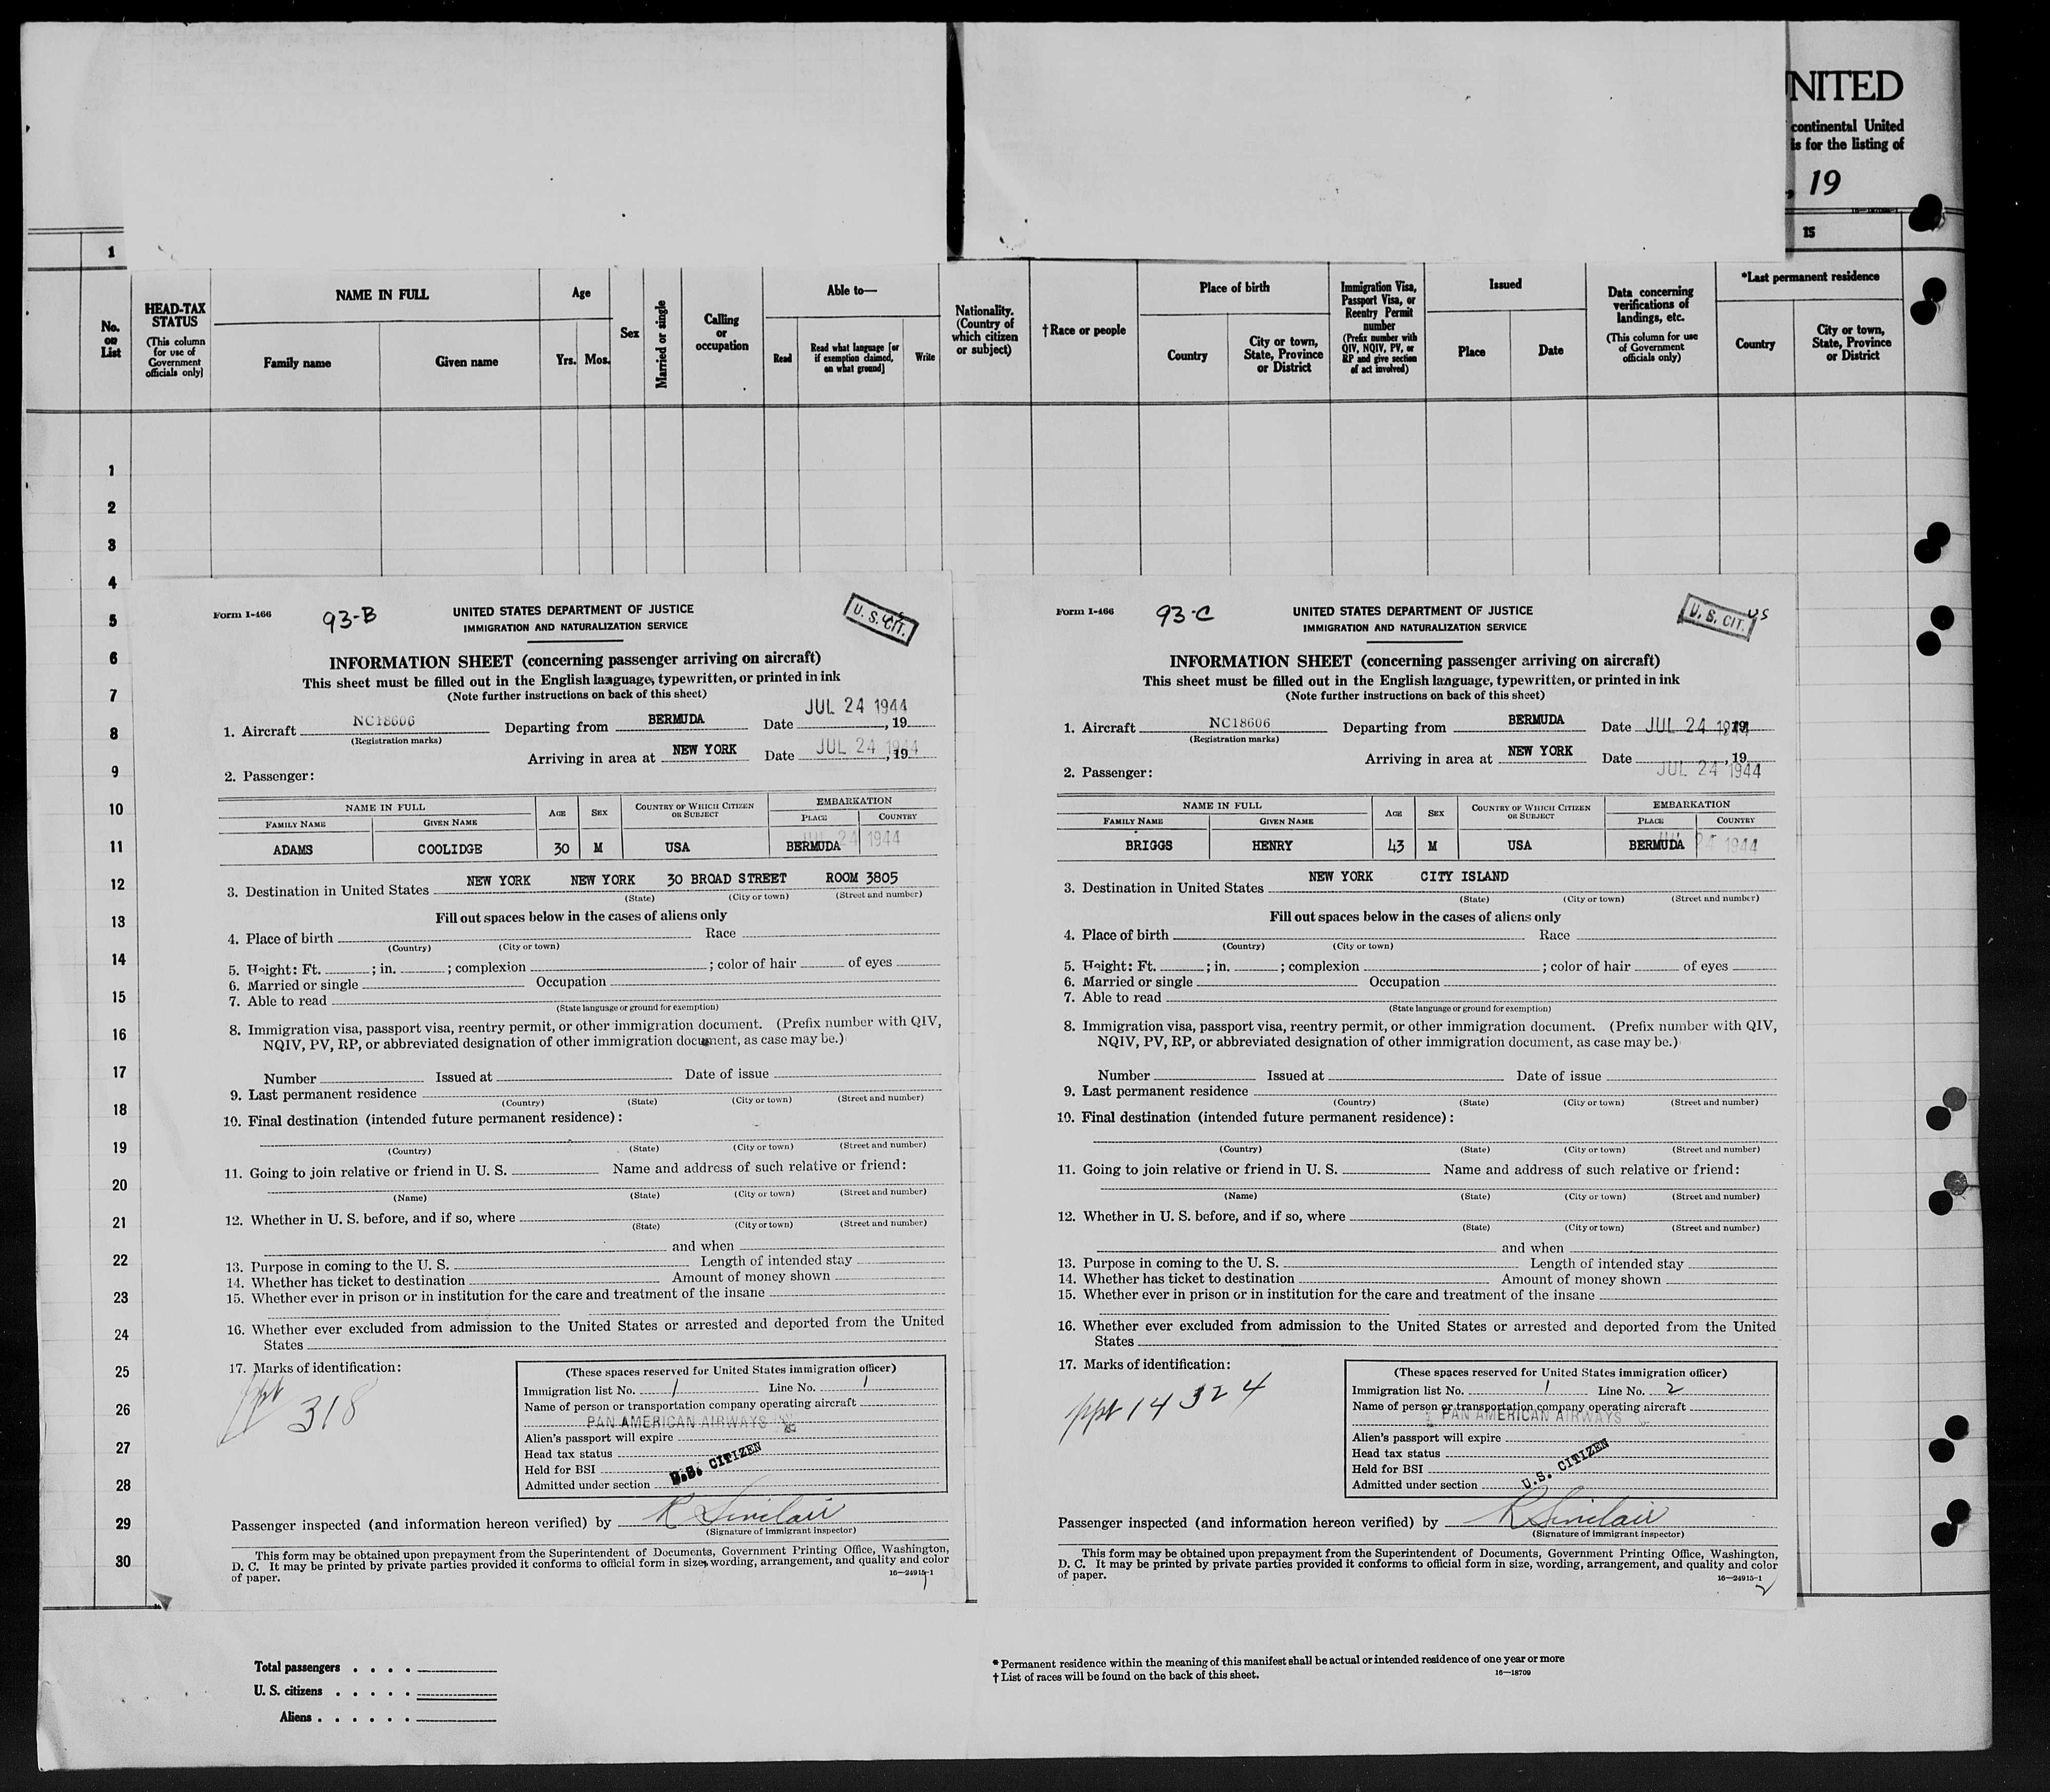 NITED
continental United
is for the listing of
, 19
1
15
No. on List
HEAD-TAX STATUS (This column for use of Government officials only)
NAME IN FULL
Family name
Given name
Age
Yrs.
Mos.
Sex
Married or single
Calling or occupation
Able to—
Read
Read what language [or if exemption claimed, on what ground]
Write
Nationality. (Country of which citizen or subject)
†Race or people
Place of birth
Country
City or town, State, Province or District
Immigration Visa, Passport Visa, or Reentry Permit number (Prefix number with QIV, NQIV, PV, or RP and give section of act involved)
Issued
Place
Date
Data concerning verifications of landings, etc. (This column for use of Government officials only)
*Last permanent residence
Country
City or town, State, Province or District
1
2
3
4
5
6
7
8
9
10
11
12
13
14
15
16
17
18
19
20
21
22
23
24
25
26
27
28
29
30
Form I-466
93-B
UNITED STATES DEPARTMENT OF JUSTICE
IMMIGRATION AND NATURALIZATION SERVICE
U. S. CIT.
INFORMATION SHEET (concerning passenger arriving on aircraft)
This sheet must be filled out in the English language, typewritten, or printed in ink
(Note further instructions on back of this sheet)
JUL 24 1944
1. Aircraft NC18606 Departing from BERMUDA Date , 19
(Registration marks)
Arriving in area at NEW YORK Date JUL 24 1944 , 19
2. Passenger:
NAME IN FULL
FAMILY NAME
GIVEN NAME
AGE
SEX
COUNTRY OF WHICH CITIZEN OR SUBJECT
EMBARKATION
PLACE
COUNTRY
JUL 24 1944
ADAMS COOLIDGE 30 M USA BERMUDA
3. Destination in United States NEW YORK NEW YORK 30 BROAD STREET ROOM 3805
(State) (City or town) (Street and number)
Fill out spaces below in the cases of aliens only
4. Place of birth Race
(Country) (City or town)
5. Height: Ft. ; in. ; complexion ; color of hair of eyes
6. Married or single Occupation
7. Able to read
(State language or ground for exemption)
8. Immigration visa, passport visa, reentry permit, or other immigration document. (Prefix number with QIV,
NQIV, PV, RP, or abbreviated designation of other immigration document, as case may be.)
Number Issued at Date of issue
9. Last permanent residence
(Country) (State) (City or town) (Street and number)
10. Final destination (intended future permanent residence):
(Country) (State) (City or town) (Street and number)
11. Going to join relative or friend in U. S. Name and address of such relative or friend:
(Name) (State) (City or town) (Street and number)
12. Whether in U. S. before, and if so, where
(State) (City or town) (Street and number)
and when
13. Purpose in coming to the U. S. Length of intended stay
14. Whether has ticket to destination Amount of money shown
15. Whether ever in prison or in institution for the care and treatment of the insane
16. Whether ever excluded from admission to the United States or arrested and deported from the United
States
17. Marks of identification:
ppt 318
(These spaces reserved for United States immigration officer)
Immigration list No. 1 Line No. 1
Name of person or transportation company operating aircraft
PAN AMERICAN AIRWAYS
Alien's passport will expire
Head tax status
Held for BSI
Admitted under section
U.S. CITIZEN
Passenger inspected (and information hereon verified) by R Sinclair
(Signature of immigrant inspector)
This form may be obtained upon prepayment from the Superintendent of Documents, Government Printing Office, Washington,
D. C. It may be printed by private parties provided it conforms to official form in size, wording, arrangement, and quality and color
of paper.
16—24915-1
1
Form I-466
93-C
UNITED STATES DEPARTMENT OF JUSTICE
IMMIGRATION AND NATURALIZATION SERVICE
U. S. CIT.
US
INFORMATION SHEET (concerning passenger arriving on aircraft)
This sheet must be filled out in the English language, typewritten, or printed in ink
(Note further instructions on back of this sheet)
1. Aircraft NC18606 Departing from BERMUDA Date JUL 24 1944 , 19
(Registration marks)
Arriving in area at NEW YORK Date , 19
JUL 24 1944
2. Passenger:
NAME IN FULL
FAMILY NAME
GIVEN NAME
AGE
SEX
COUNTRY OF WHICH CITIZEN OR SUBJECT
EMBARKATION
PLACE
COUNTRY
JUL 24 1944
BRIGGS HENRY 43 M USA BERMUDA
3. Destination in United States NEW YORK CITY ISLAND
(State) (City or town) (Street and number)
Fill out spaces below in the cases of aliens only
4. Place of birth Race
(Country) (City or town)
5. Height: Ft. ; in. ; complexion ; color of hair of eyes
6. Married or single Occupation
7. Able to read
(State language or ground for exemption)
8. Immigration visa, passport visa, reentry permit, or other immigration document. (Prefix number with QIV,
NQIV, PV, RP, or abbreviated designation of other immigration document, as case may be.)
Number Issued at Date of issue
9. Last permanent residence
(Country) (State) (City or town) (Street and number)
10. Final destination (intended future permanent residence):
(Country) (State) (City or town) (Street and number)
11. Going to join relative or friend in U. S. Name and address of such relative or friend:
(Name) (State) (City or town) (Street and number)
12. Whether in U. S. before, and if so, where
(State) (City or town) (Street and number)
and when
13. Purpose in coming to the U. S. Length of intended stay
14. Whether has ticket to destination Amount of money shown
15. Whether ever in prison or in institution for the care and treatment of the insane
16. Whether ever excluded from admission to the United States or arrested and deported from the United
States
17. Marks of identification:
ppt 14324
(These spaces reserved for United States immigration officer)
Immigration list No. 1 Line No. 2
Name of person or transportation company operating aircraft
PAN AMERICAN AIRWAYS
Alien's passport will expire
Head tax status
Held for BSI
Admitted under section
U.S. CITIZEN
Passenger inspected (and information hereon verified) by R Sinclair
(Signature of immigrant inspector)
This form may be obtained upon prepayment from the Superintendent of Documents, Government Printing Office, Washington,
D. C. It may be printed by private parties provided it conforms to official form in size, wording, arrangement, and quality and color
of paper.
16—24915-1
2
Total passengers . . . .
U. S. citizens . . . . .
Aliens . . . . . .
* Permanent residence within the meaning of this manifest shall be actual or intended residence of one year or more
† List of races will be found on the back of this sheet.
16—18709